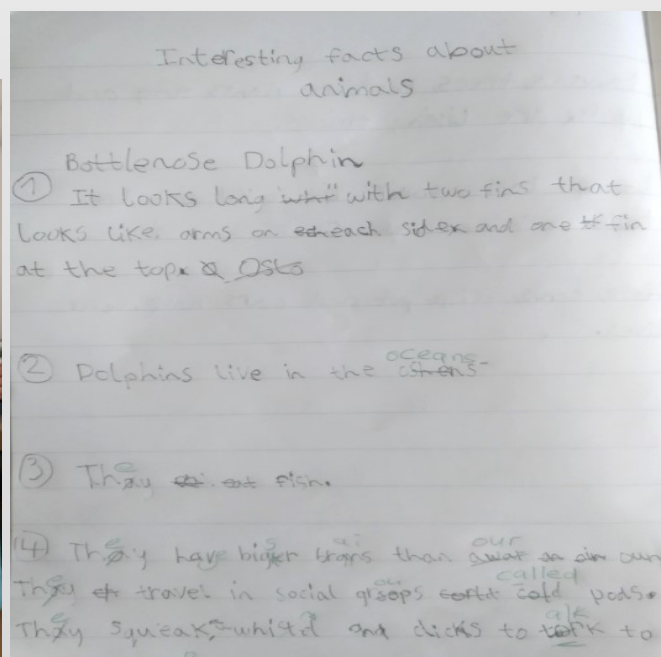 Interesting facts about
animals
Bottlenose Dolphin
① It looks long with two fins that
looks like arms on each side and one fin
at the top.
② Dolphins live in the oceans
③ They eat fish.
④ They have bigger brains than our
They travel in social groups called pods.
They squeak, and clicks to talk to